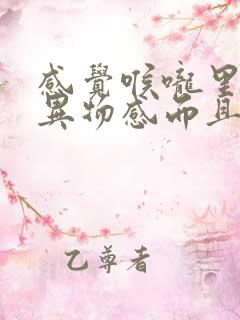 感覺喉嚨里
異物感而且
乙尊者